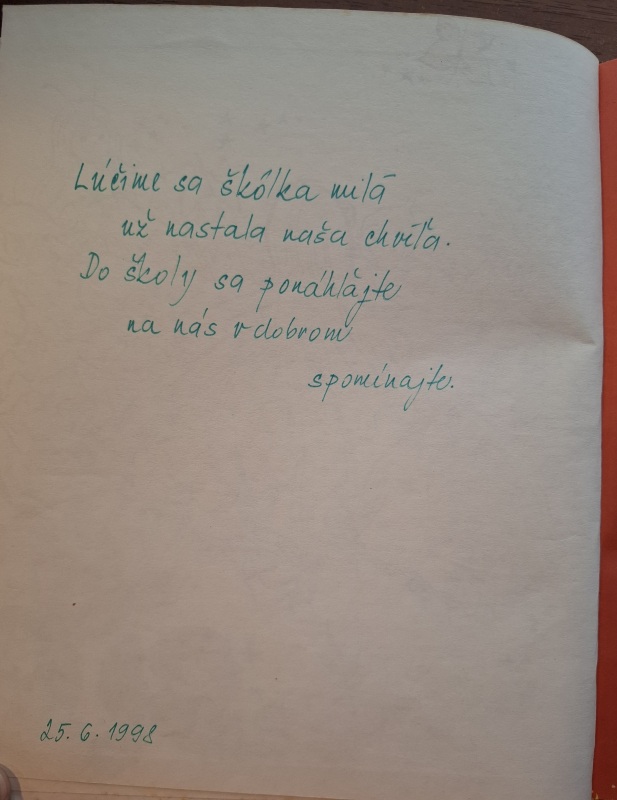 Lúčime sa škôlka milá
už nastala naša chvíľa.
Do školy sa ponáhľajte
na nás v dobrom
spomínajte.
25. 6. 1998